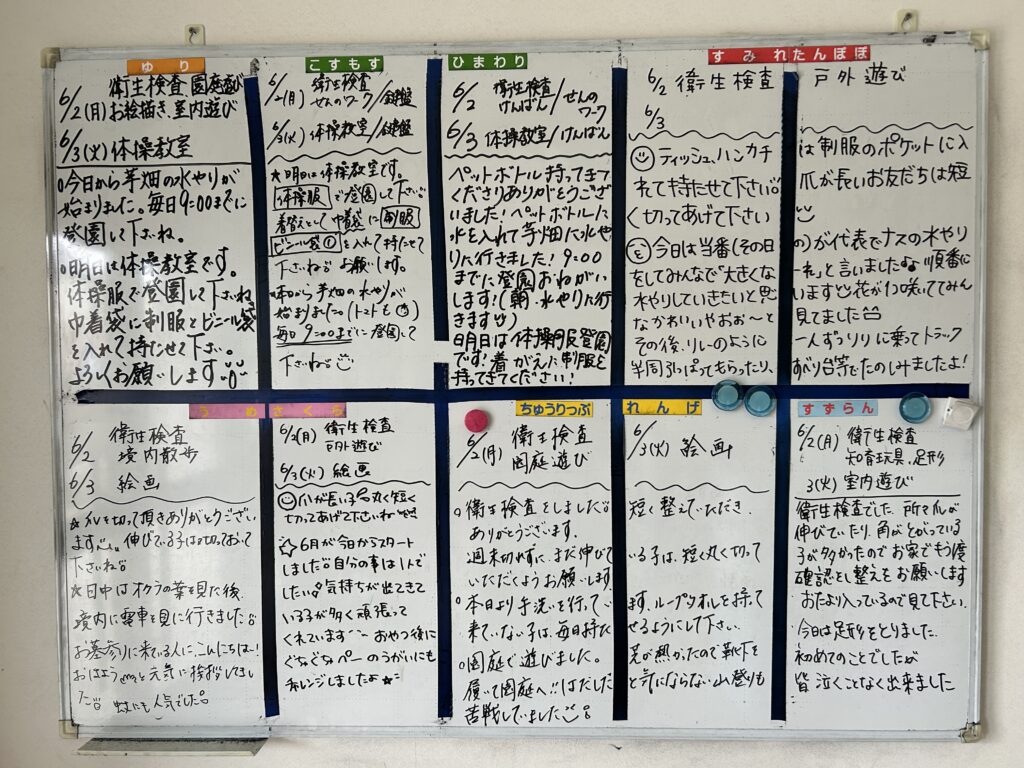 ゆり
衛生検査、園庭遊び
6/2(月)お絵描き、室内遊び
6/3(火)体操教室
○今日から芋畑の水やりが
始まりました。毎日9:00までに
登園して下さいね。
○明日は体操教室です。
体操服で登園して下さいね
巾着袋に制服とビニール袋
を入れて持たせて下さい。
よろしくお願いします
こすもす
6/2(月) 衛生検査
せんのワーク/鍵盤
6/3(火) 体操教室/鍵盤
★明日は体操教室です。
体操服で登園して下さい
着替えとして巾着袋に制服
ビニール袋①を入れて持たせて
下さいね お願いします。
から芋畑の水やりが
始まりました(トマトも)
毎日9:00までに登園して
下さいね
ひまわり
6/2 衛生検査
けんばん/せんのワーク
6/3 体操教室/けんばん
ペットボトル持ってきて
くださりありがとうござ
いました!ペットボトルに
水を入れて芋畑に水や
りに行きました!9:00
までに登園おねがい
します!(朝、水やりに行
きます)
明日は体操服登園
です!着がえに制服を
持ってきてください!
すみれたんぽぽ
6/2 衛生検査 戸外遊び
6/3
ティッシュ、ハンカチは制服のポケットに入
れて持たせて下さい 爪が長いお友だちは短
く切ってあげて下さい
今日は当番(その日の)が代表でナスの水やり
をしてみんなで「大きくなーれ」と言いました 順番に
水やりしていきたいと思います 花が1つ咲いててみん
なかわいいやおぉ〜と見てました
その後、リレーのように一人ずつソリに乗ってトラック
半周引っぱってもらったり、すべり台等でたのしみましたよ!
うめさくら
6/2 衛生検査
境内散歩
6/3 絵画
★爪を切って頂きありがとうござい
ます 伸びている子は切っておいて
下さいね
★日中はオクラの葉を見た後、
境内に電車を見に行きました
お墓参りに来ている人に、こんにちはー!
おはようと元気に挨拶してまし
た 蚊にも人気でした
6/2(月) 衛生検査
戸外遊び
6/3(火) 絵画
爪が長い子 丸く短く
切ってあげて下さいね
☆6月が今日からスタート
しました 自分の事は1人で
したい 気持ちが出てきて
いる子が多く頑張って
くれています おやつ後に
ぐちゅぐちゅペーのうがいにも
チャレンジしましたよ
ちゅうりっぷ れんげ
6/2(月) 衛生検査
園庭遊び
6/3(火) 絵画
○衛生検査をしました 短く整えていただき
ありがとうございます。
週末切れずに、まだ伸びている子は、短く丸く切って
いただくようお願いします
○本日より手洗いを行って ます。ループタオルを持って
来ていない子は、毎日持たせるようにして下さい。
○園庭で遊びました。 足が熱かったので靴下を
履いて園庭へ!!はだしだと気にならない山登りも
苦戦していました
すずらん
6/2(月) 衛生検査
知育玩具、足形
3(火) 室内遊び
衛生検査でした。所々爪が
伸びていたり、角がとがっている
子が多かったのでお家でもう1度
確認をし整えをお願いします
おたより入っているので見て下さい。
今日は足形をとりました。
初めてのことでしたが
皆泣くことなく出来ました